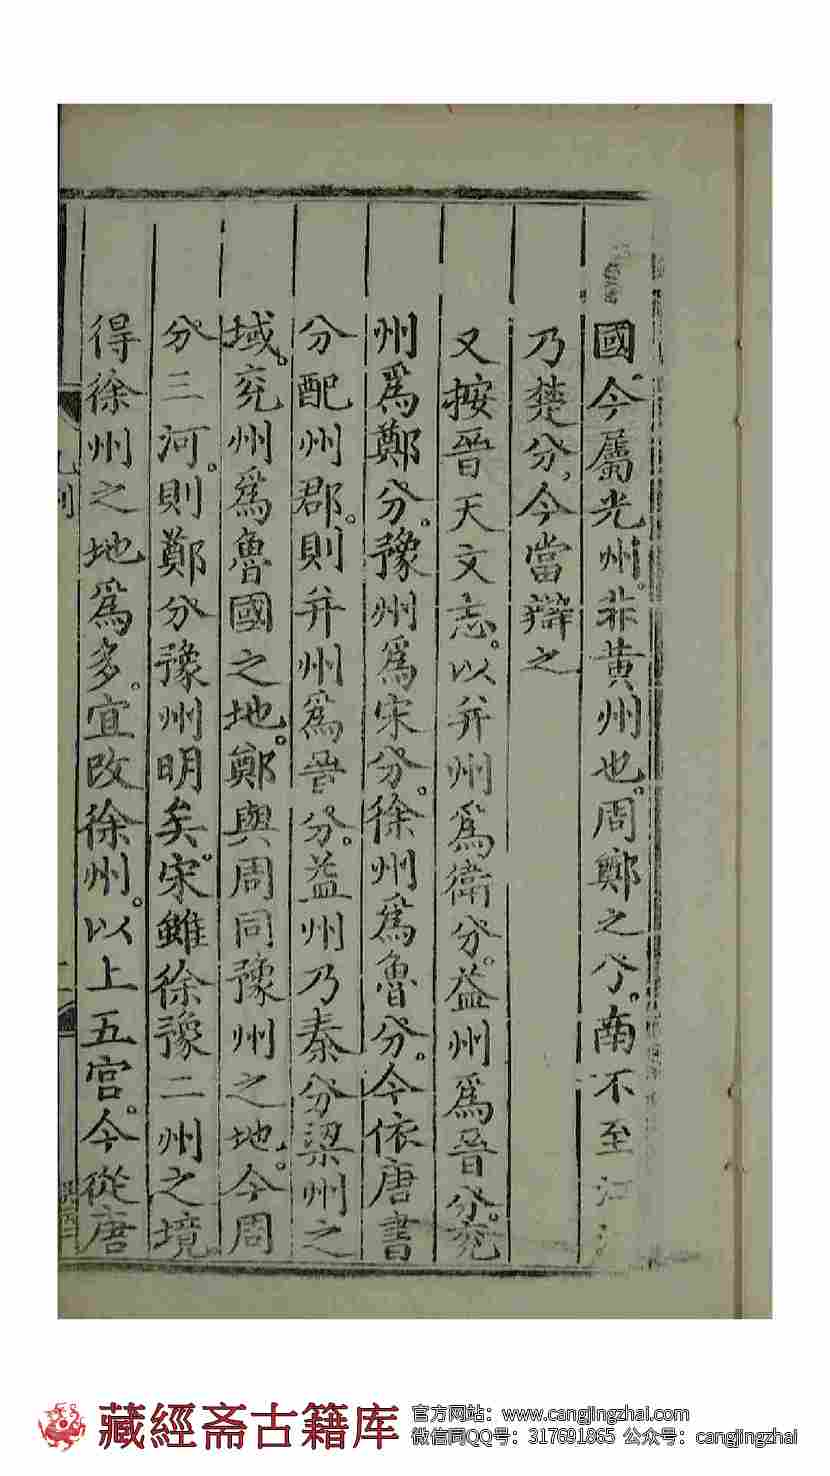 國。今屬光州。非黃州也。周鄭之分。南不至江
乃楚分。今當辯之
又按晉天文志。以并州爲衛分。益州爲晉分。兖
州爲鄭分。豫州爲宋分。徐州爲魯分。今依唐書
分配州郡。則并州爲晉分。益州乃秦分梁州之
域。兖州爲魯國之地。鄭與周同豫州之地。今周
分三河。則鄭分豫州明矣。宋雖徐豫二州之境
得徐州之地爲多。宜改徐州。以上五宮。今從唐
藏經斋古籍库
官方网站：www.cangjingzhai.com
微信同QQ号：317691865 公众号：cangjingzhai